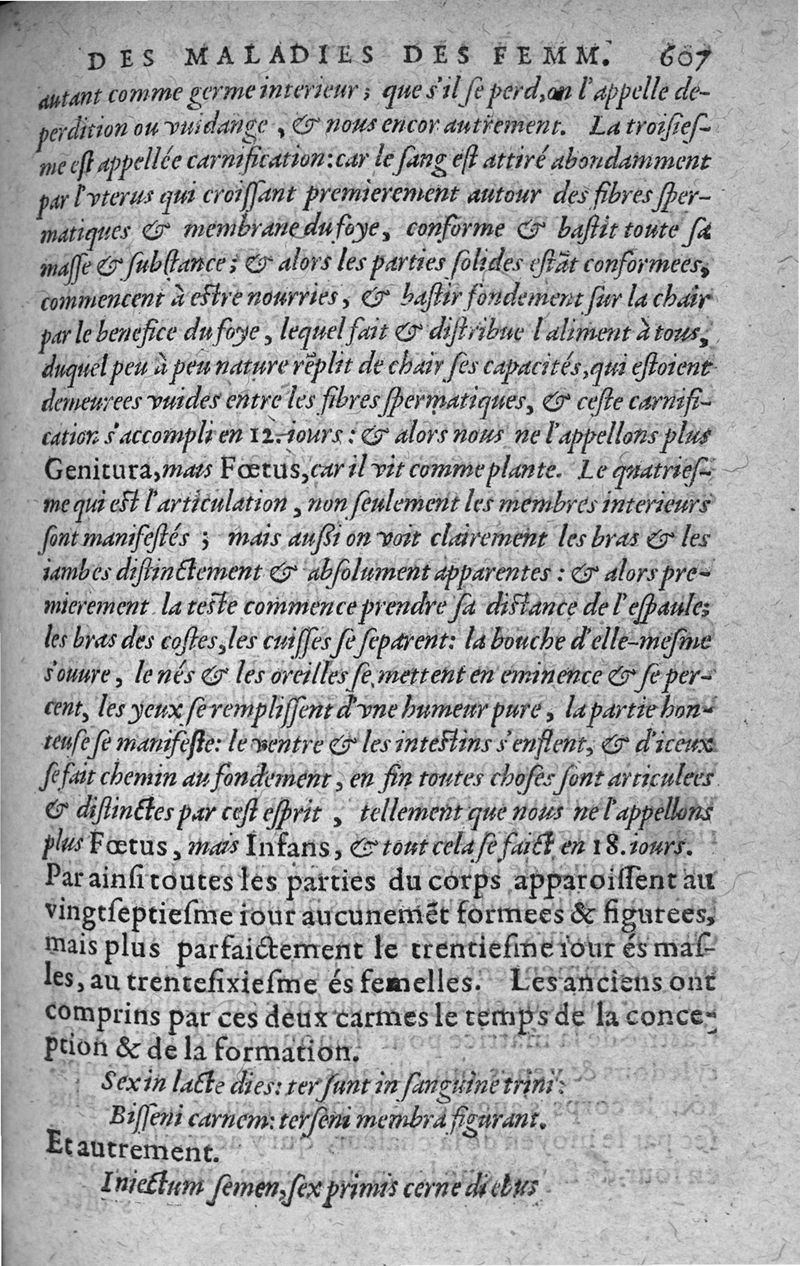 DES MALADIES DES FEMM. 607
autant comme germe interieur; que s'il ſe perd, on l'appelle de-
perdition ou vuidange, & nous encor autrement. La troiſieſ-
me eſt appellée carnification: car le ſang eſt attiré abondamment
par l'vterus qui croiſſant premierement autour des fibres ſper-
matiques & membrane du foye, conforme & baſtit toute ſa
maſſe & ſubſtance; & alors les parties ſolides eſtāt conformees,
commencent à eſtre nourries, & baſtir fondement ſur la chair
par le benefice du foye, lequel fait & diſtribue l'aliment à tous,
duquel peu à peu nature rēplit de chair ſes capacités, qui eſtoient
demeurees vuides entre les fibres ſpermatiques, & ceſte carnifi-
cation s'accompli en 12. iours: & alors nous ne l'appellons plus
Genitura, mais Fœtus, car il vit comme plante. Le quatrieſ-
me qui eſt l'articulation, non ſeulement les membres interieurs
ſont manifeſtés; mais auſſi on voit clairement les bras & les
iambes diſtinctement & abſolument apparentes: & alors pre-
mierement la teſte commence prendre ſa diſtance de l'eſpaule;
les bras des coſtes, les cuiſſes ſe ſeparent: la bouche d'elle-meſme
s'ouure, le nés & les oreilles ſe mettent en eminence & ſe per-
cent, les yeux ſe rempliſſent d'vne humeur pure, la partie hon-
teuſe ſe manifeſte: le ventre & les inteſtins s'enflent, & d'iceux
ſe fait chemin au fondement, en fin toutes choſes ſont articulees
& diſtinctes par ceſt eſprit, tellement que nous ne l'appellons
plus Fœtus, mais Infans, & tout cela ſe faict en 18. iours.
Par ainſi toutes les parties du corps apparoiſſent au
vingtſeptieſme iour aucunemēt formees & figurees,
mais plus parfaictement le trentieſme iour és maſ-
les, au trenteſixieſme és femelles. Les anciens ont
comprins par ces deux carmes le temps de la conce-
ption & de la formation.
Sex in lacte dies: ter ſunt in ſanguine trini:
Biſſeni carnem: ter ſeni membra figurant.
Et autrement.
Iniectum ſemen, ſex primis cerne diebus